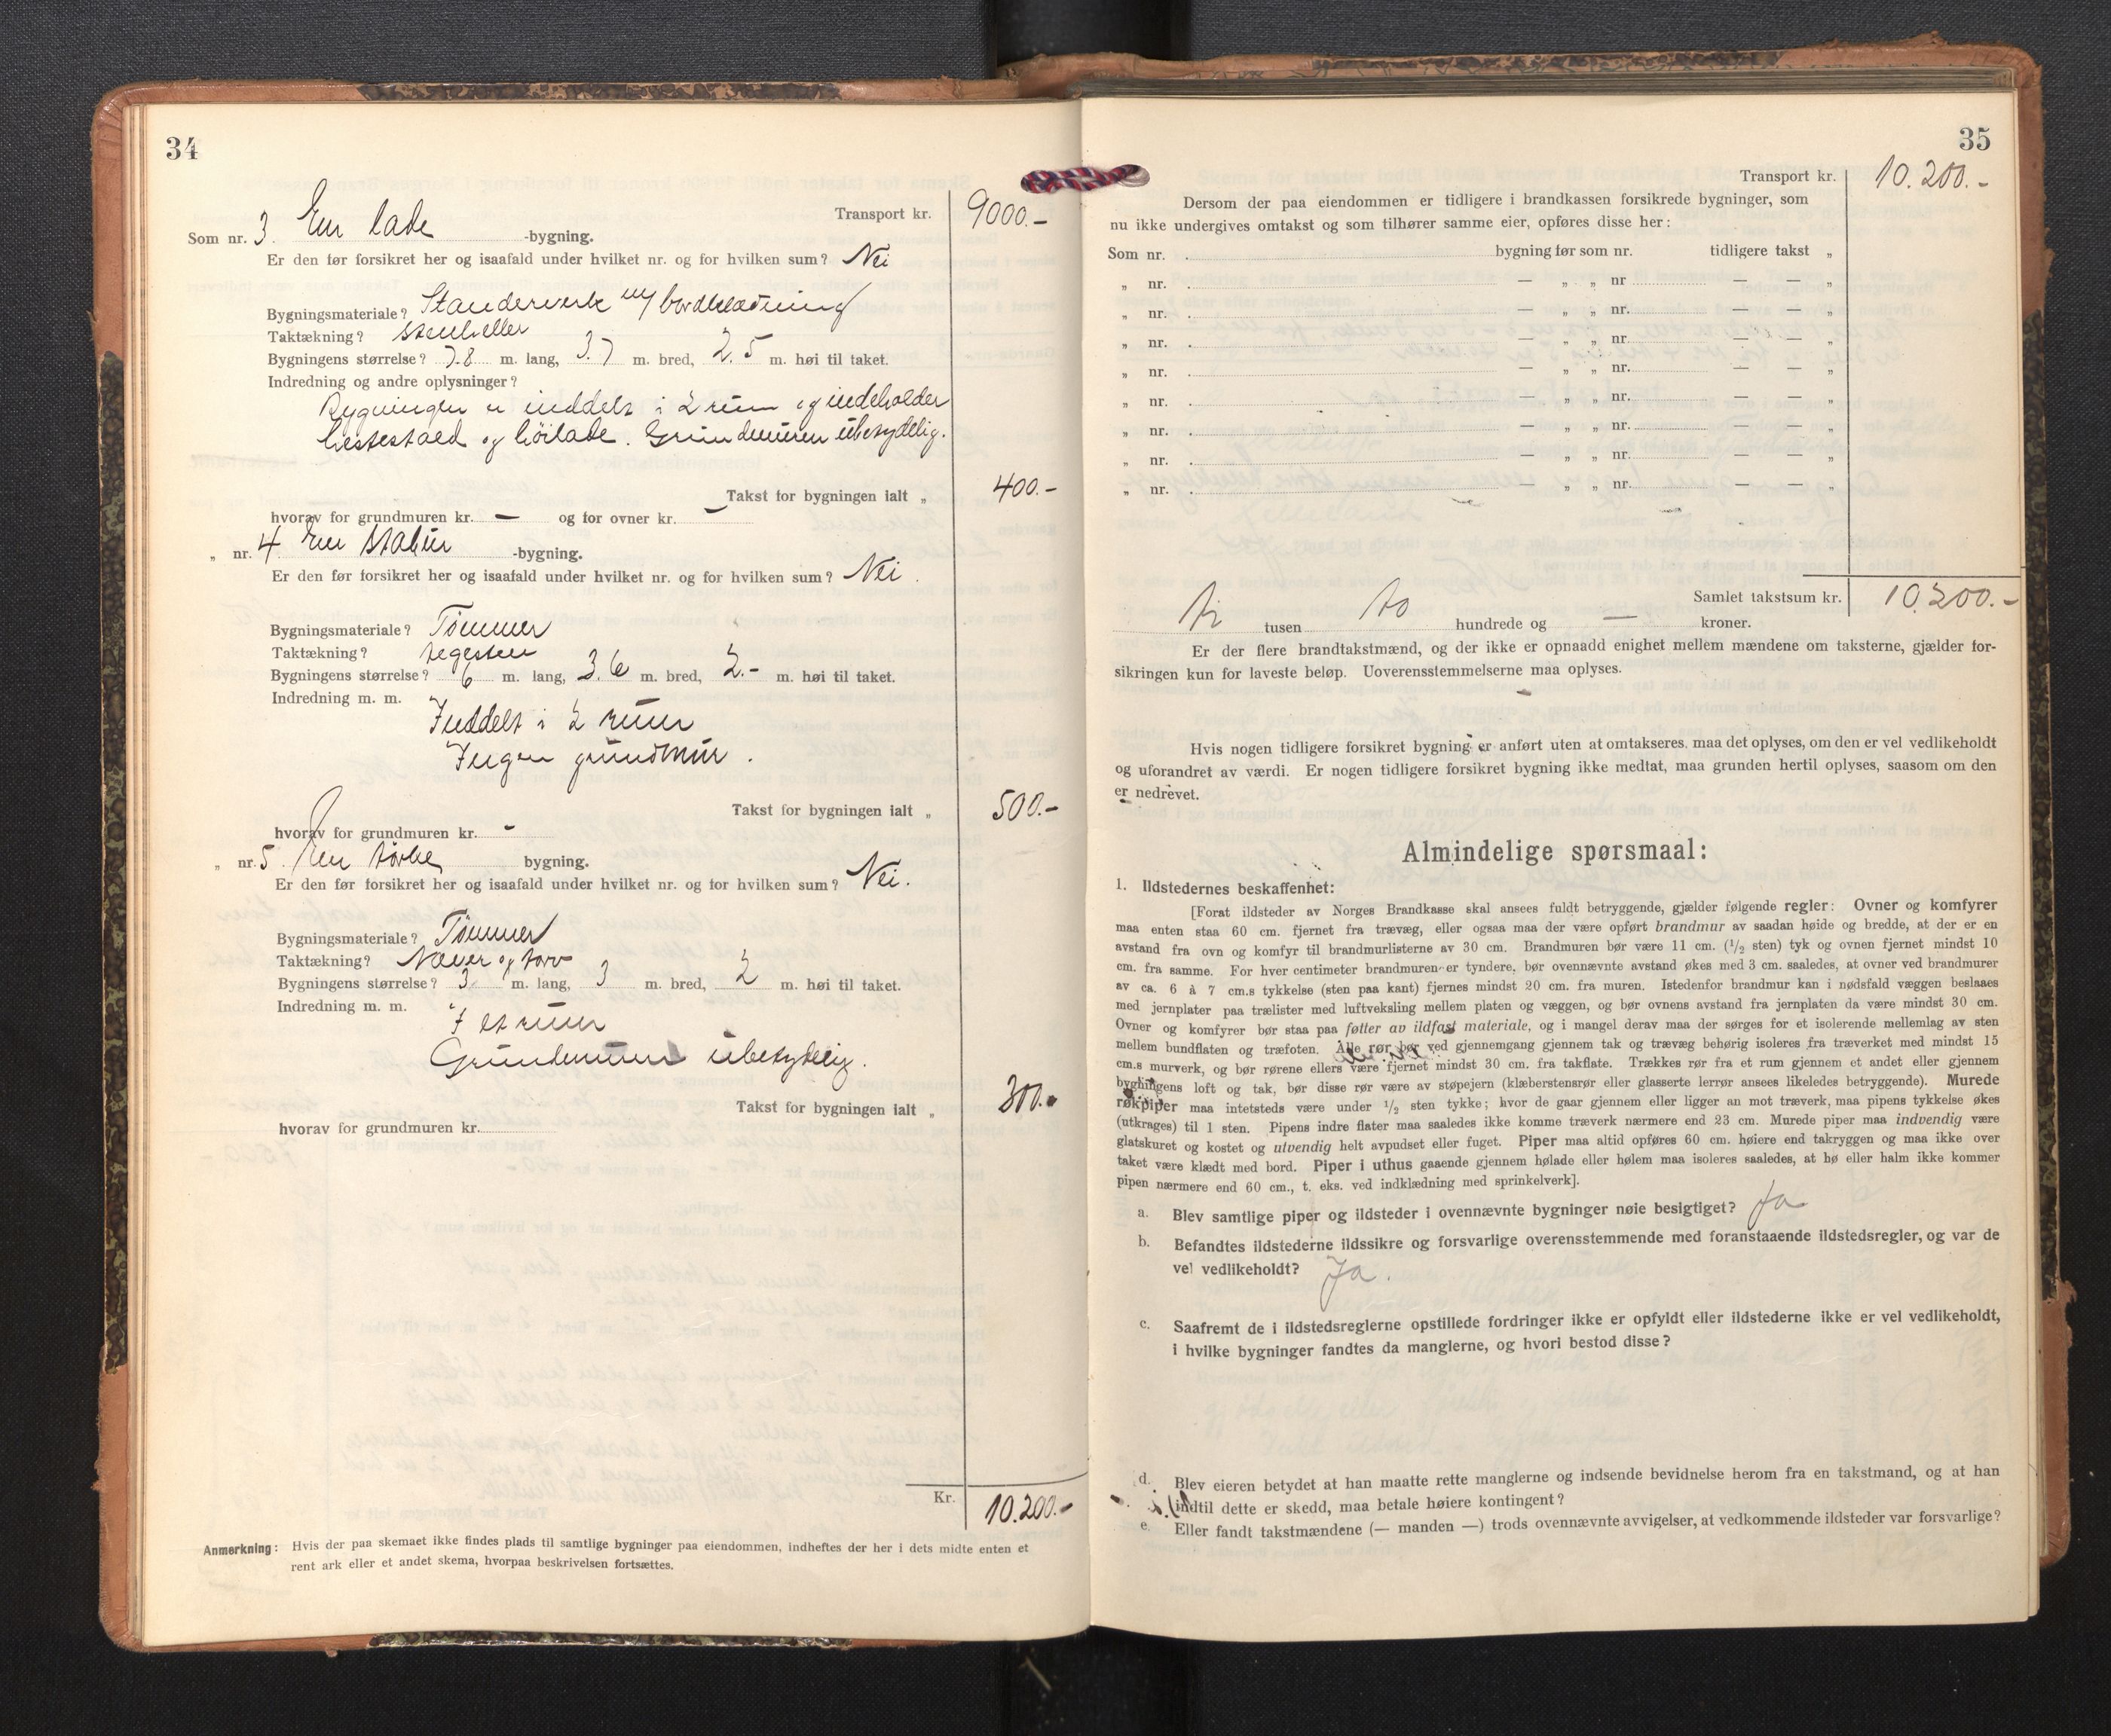 34
Transport kr. 9000.-
Som nr. 3. En lade -bygning.
Er den før forsikret her og isaafald under hvilket nr. og for hvilken sum? Nei
Bygningsmateriale? Standerverk m/ bordklædning
Taktækning? stenheller
Bygningens størrelse? 7.8 m. lang, 3.7 m. bred, 2.5 m. høi til taket.
Indredning og andre oplysninger?
Bygningen er inddelt i 2 rum og indeholder
hestestald og høilade. Grundmuren ubetydelig.
Takst for bygningen ialt „ 400.-
hvorav for grundmuren kr. — og for ovner kr. —
„ nr. 4 En stabur -bygning.
Er den før forsikret her og isaafald under hvilket nr. og for hvilken sum? Nei.
Bygningsmateriale? Tømmer
Taktækning? tegesten
Bygningens størrelse? 6 m. lang, 3.6 m. bred, 2.- m. høi til taket.
Indredning m. m.
Inddelt i 2 rum
Ingen grundmur.
Takst for bygningen ialt „ 500.-
hvorav for grundmuren kr. -
„ nr. 5. En tørke bygning.
Er den før forsikret her og isaafald under hvilket nr. og for hvilken sum? Nei.
Bygningsmateriale? Tømmer
Taktækning? Næver og torv
Bygningens størrelse? 3 m. lang, 3 m. bred, 2 m. høi til taket.
Indredning m. m.
I et rum
Grundmuren ubetydelig.
Takst for bygningen ialt „ 300.-
hvorav for grundmuren kr.
Kr. 10.200.-
Anmerkning: Hvis der paa skemaet ikke findes plads til samtlige bygninger paa eiendommen, indheftes der her i dets midte enten et
rent ark eller et andet skema, hvorpaa beskrivelsen fortsættes.
35
Transport kr. 10.200.-
Dersom der paa eiendommen er tidligere i brandkassen forsikrede bygninger, som
nu ikke undergives omtakst og som tilhører samme eier, opføres disse her:
Som nr. bygning før som nr. tidligere takst „
„ nr. — „ „ nr — — „
„ nr. — „ „ nr. — — „
„ nr. — „ „ nr. — — „
„ nr. — „ „ nr. — — „
„ nr. — „ „ nr. — — „
„ nr. — „ „ nr. — — „
„ nr. — „ „ nr. — — „
„ nr. — „ „ nr. — — „
Samlet takstsum kr. 10.200.-
ti tusen to hundrede og — kroner.
Er der flere brandtakstmænd, og der ikke er opnaadd enighet mellem mændene om taksterne, gjælder for-
sikringen kun for laveste beløp. Uoverensstemmelserne maa oplyses.
Hvis nogen tidligere forsikret bygning er anført uten at omtakseres. maa det oplyses, om den er vel vedlikeholdt
og uforandret av værdi. Er nogen tidligere forsikret bygning ikke medtat, maa grunden hertil oplyses, saasom om den
er nedrevet.
Almindelige spørsmaal:
1. Ildstedernes beskaffenhet:
[Forat ildsteder av Norges Brandkasse skal ansees fuldt betryggende, gjælder følgende regler: Ovner og komfyrer
maa enten staa 60 cm. fjernet fra trævæg, eller ogsaa maa der være opført brandmur av saadan høide og bredde, at der er en
avstand fra ovn og komfyr til brandmurlisterne av 30 cm. Brandmuren bør være 11 cm. (1/2 sten) tyk og ovnen fjernet mindst 10
cm. fra samme. For hver centimeter brandmuren er tyndere, bør ovennævnte avstand økes med 3 cm. saaledes, at ovner ved brandmurer
av ca. 6 à 7 cm.s tykkelse (sten paa kant) fjernes mindst 20 cm. fra muren. Istedenfor brandmur kan i nødsfald væggen beslaaes
med jernplater paa trælister med luftveksling mellem platen og væggen, og bør ovnens avstand fra jernplaten da være mindst 30 cm.
Ovner og komfyrer bør staa paa føtter av ildfast materiale, og i mangel derav maa der sørges for et isolerende mellemlag av sten
mellem bundflaten og træfoten. Alle rør bør ved gjennemgang gjennem tak og trævæg behørig isoleres fra træverket med mindst 15
cm.s murverk, og bør rørene ellers være fjernet mindst 30 cm. fra takflate. Trækkes rør fra et rum gjennem et andet eller gjennem
bygningens loft og tak, bør disse rør være av støpejern (klæberstensrør eller glasserte lerrør ansees likeledes betryggende). Murede
røkpiper maa intetsteds være under 1/2 sten tykke; hvor de gaar gjennem eller ligger an mot træverk, maa pipens tykkelse økes
(utkrages) til 1 sten. Pipens indre flater maa saaledes ikke komme træverk nærmere end 23 cm. Murede piper maa indvendig være
glatskuret og kostet og utvendig helt avpudset eller fuget. Piper maa altid opføres 60 cm. høiere end takryggen og maa ikke over
taket være klædt med bord. Piper i uthus gaaende gjennem hølade eller hølem maa isoleres saaledes, at hø eller halm ikke kommer
pipen nærmere end 60 cm., t. eks. ved indklædning med sprinkelverk].
a. Blev samtlige piper og ildsteder i ovennævnte bygninger nøie besigtiget? Ja
b. Befandtes ildstederne ildssikre og forsvarlige overensstemmende med foranstaaende ildstedsregler, og var de
vel vedlikeholdt? Ja.
c. Saafremt de i ildstedsreglerne opstillede fordringer ikke er opfyldt eller ildstederne ikke er vel vedlikeholdt,
i hvilke bygninger fandtes da manglerne, og hvori bestod disse?
d. Blev eieren betydet at han maatte rette manglerne og indsende bevidnelse herom fra en takstmand, og at han
indtil dette er skedd, maa betale høiere kontingent?
e. Eller fandt takstmændene (— manden —) trods ovennævnte avvigelser, at vedkommende ildsteder var forsvarlige?